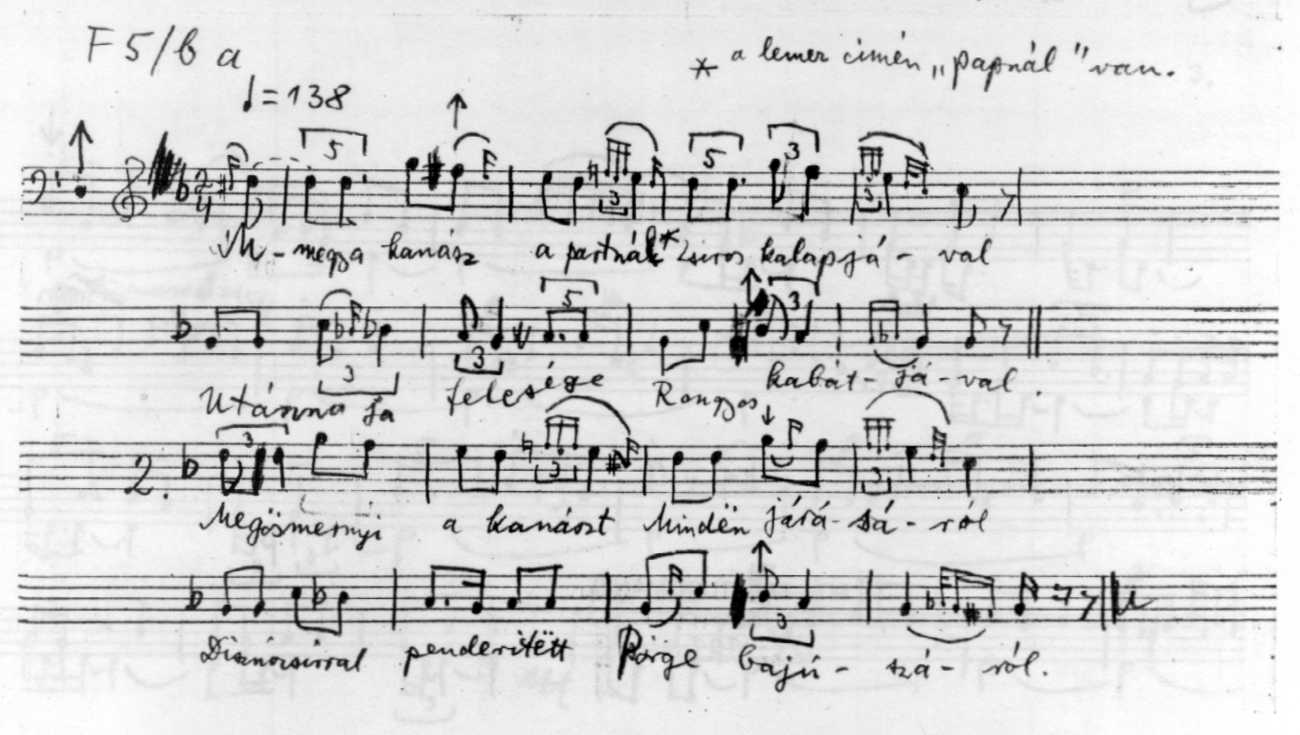 F 5/b a
* a lemez címén „papnál" van.
♩= 138
M-megya kanász a partnál* Zsiros kalapjá-val
Utánna ja felesége Rongyos kabát-já-val.
2. Megösmernyi a kanászt Mindën járá-sá-ról
Disznózsirral penderitëtt Pörge bajú-szá-ról.